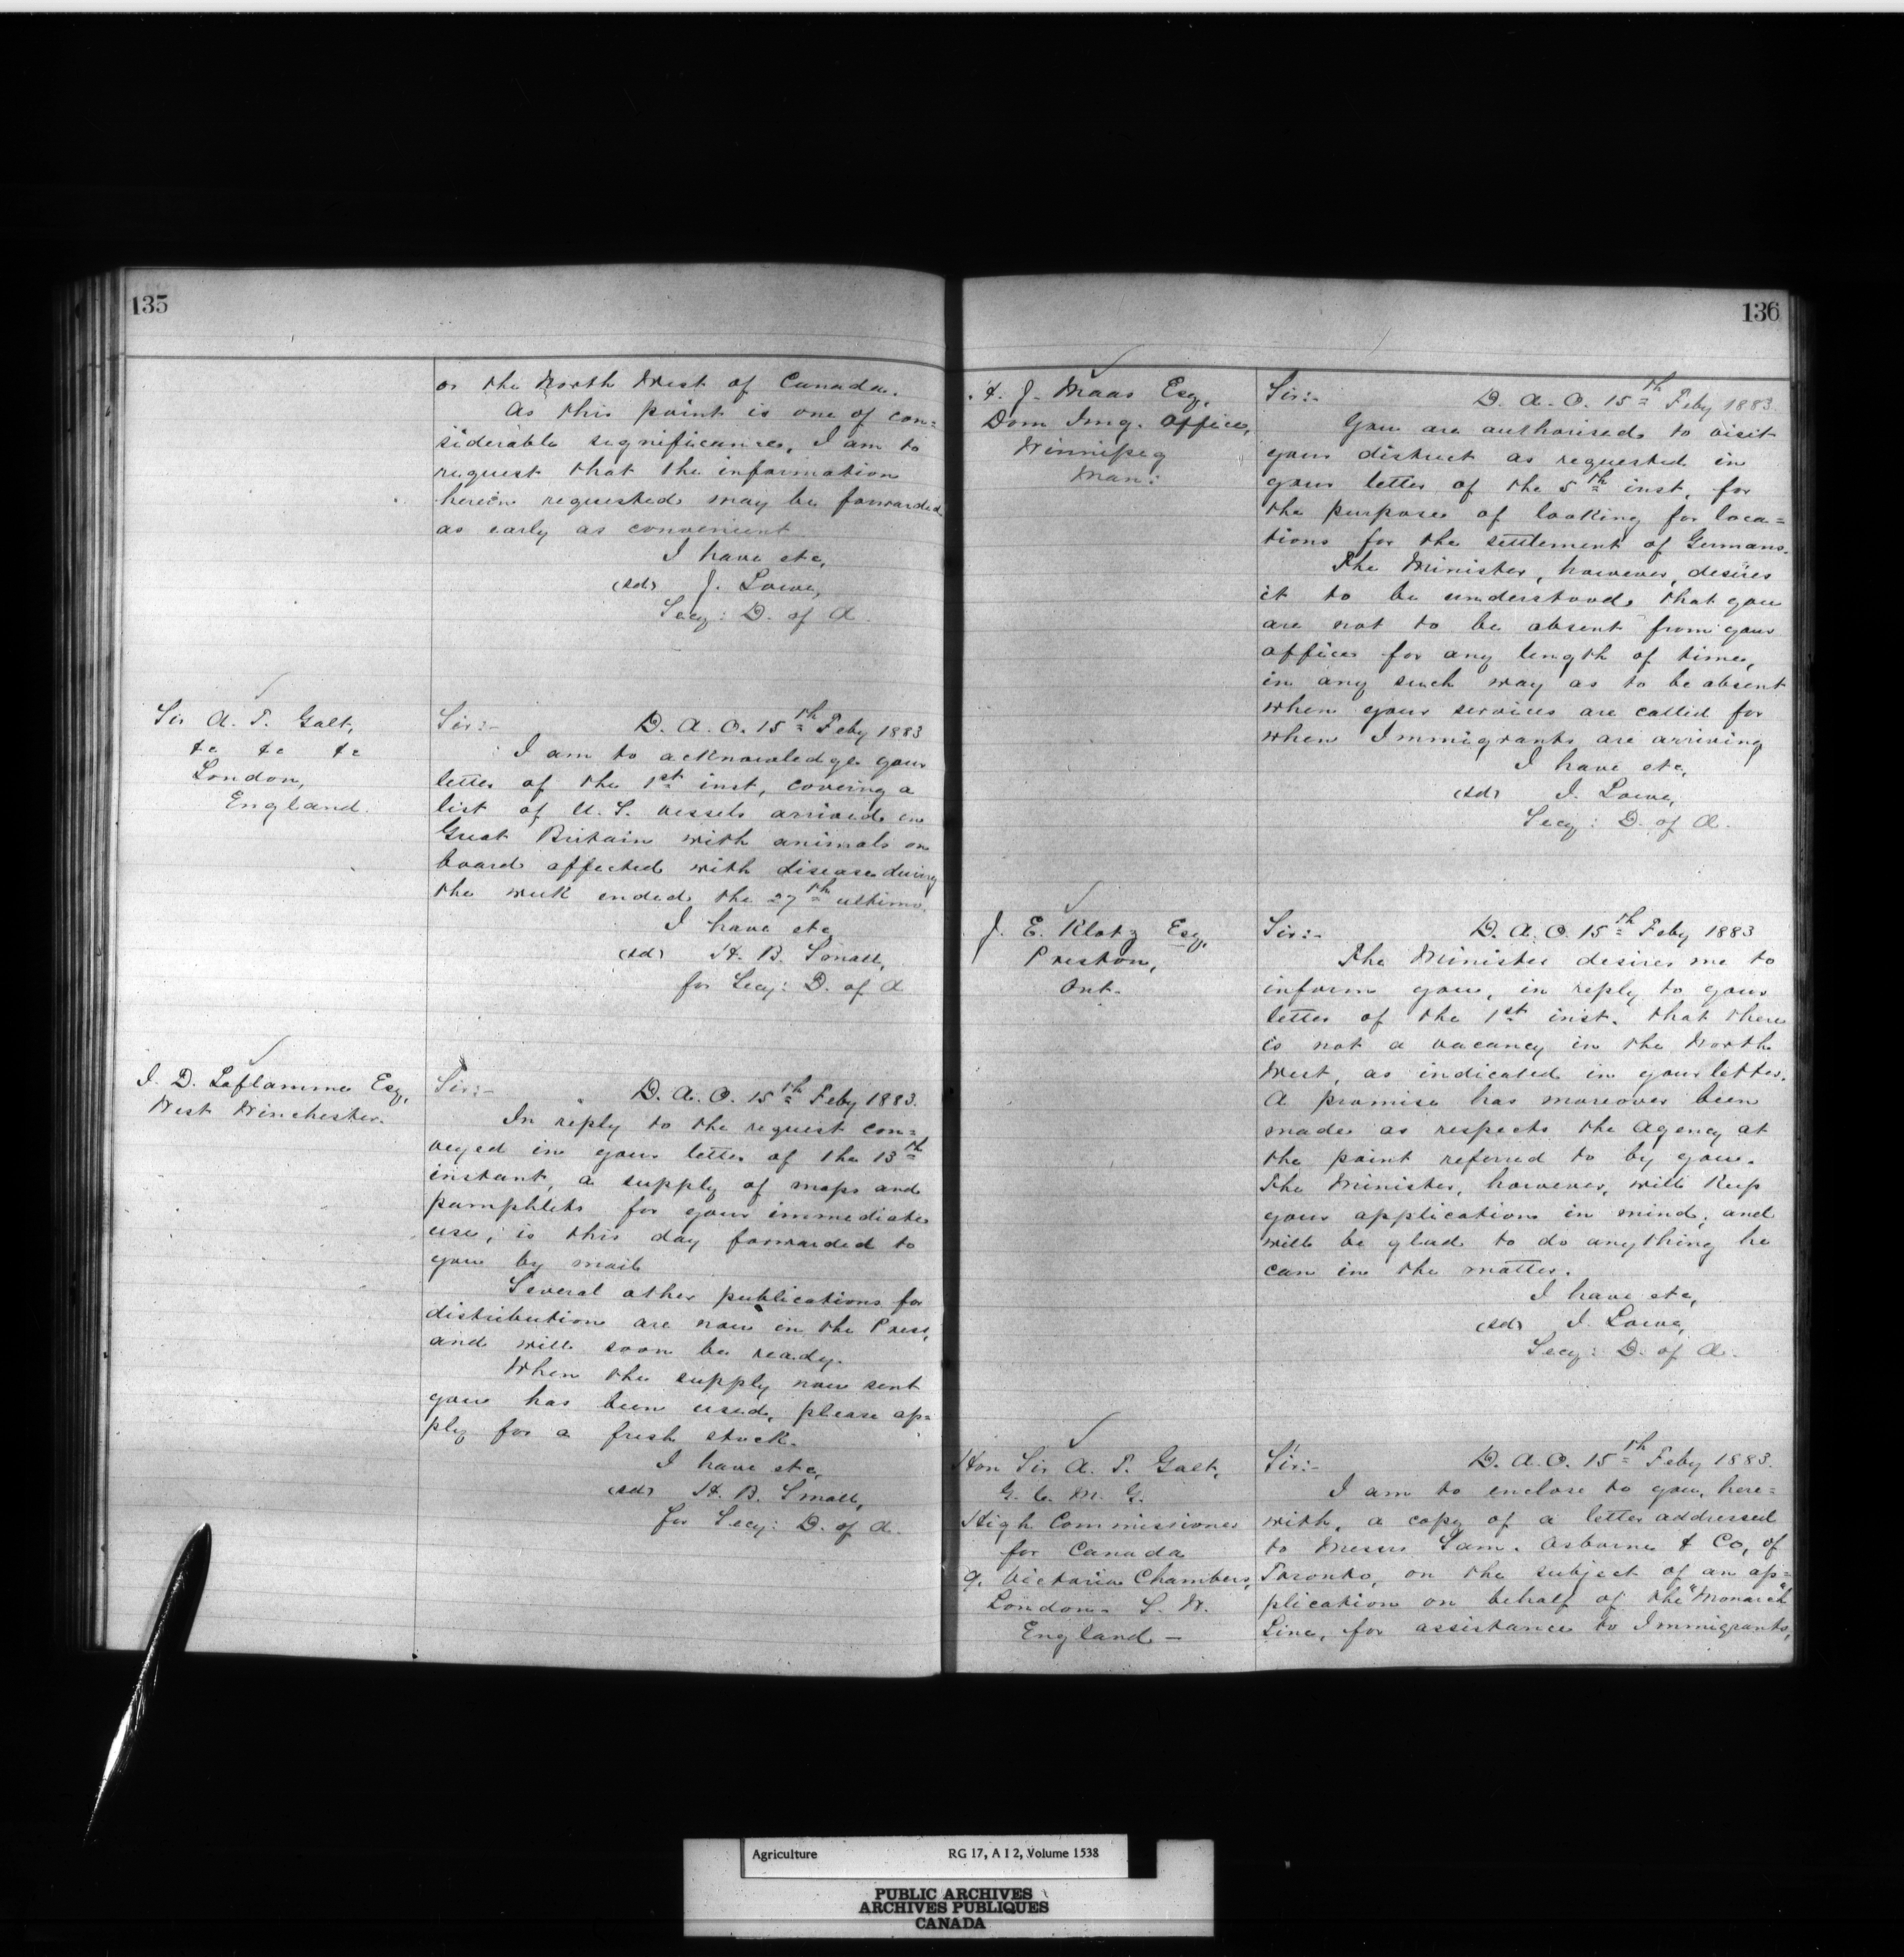 135
or the North West of Canada.
As this point is one of con=
siderable significance, I am to
request that the information
herein requested may be forwarded
as early as convenient
I have etc,
(sd) J. Lowe,
Secy: D. of A.
Sir A. T. Galt,
&c &c &c
London,
England.
Sir:- D. A. O. 15th Feby 1883
I am to acknowledge your
letter of the 1st inst, covering a
list of U. S. vessels arrived in
Great Britain with animals on
board affected with disease during
the week ended the 27th ultimo.
I have etc
(sd) H. B. Small,
for Secy: D. of A
J. D. Laflamme Esq,
West Winchester.
Sir:- D. A. O. 15th Feby 1883.
In reply to the request con=
veyed in your letter of the 13th
instant, a supply of maps and
pamphlets for your immediate
use, is this day forwarded to
you by mail
Several other publications for
distribution are now in the Press,
and will soon be ready.
When the supply now sent
you has been used, please ap=
ply for a fresh stock.
I have etc,
(sd) H. B. Small,
for Secy: D. of A.
136
J. Maas Esq,
Dom Img. Office,
Winnipeg
Man:
Sir:- D. A. O. 15th Feby 1883.
You are authorised to visit
your district as requested in
your letter of the 5th inst, for
the purpose of looking for loca=
tions for the settlement of Germans.
The Minister, however, desires
it to be understood that you
are not to be absent from your
office for any length of time,
in any such way as to be absent
when your services are called for
when Immigrants are arriving
I have etc,
(sd) J. Lowe,
Secy: D. of A.
J. E. Klotz Esq,
Preston,
Ont.
Sir:- D. A. O. 15th Feby 1883
The Minister desires me to
inform you, in reply to your
letter of the 1st inst. that there
is not a vacancy in the North
West, as indicated in your letter.
A promise has moreover been
made as respects the Agency at
the point referred to by you.
The Minister, however, will keep
your application in mind, and
will be glad to do anything he
can in the matter.
I have etc,
(sd) J. Lowe,
Secy: D. of A.
Hon Sir A. T. Galt,
G. C. M. G.
High Commissioner
for Canada
9. Victoria Chambers,
London. S. W.
England —
Sir:- D. A. O. 15th Feby 1883.
I am to enclose to you, here=
with, a copy of a letter addressed
to Messrs Sam. Osborne & Co, of
Toronto, on the subject of an ap=
plication on behalf of the "Monarch"
Line, for assistance to Immigrants,
Agriculture RG 17, A I 2, Volume 1538
PUBLIC ARCHIVES
ARCHIVES PUBLIQUES
CANADA